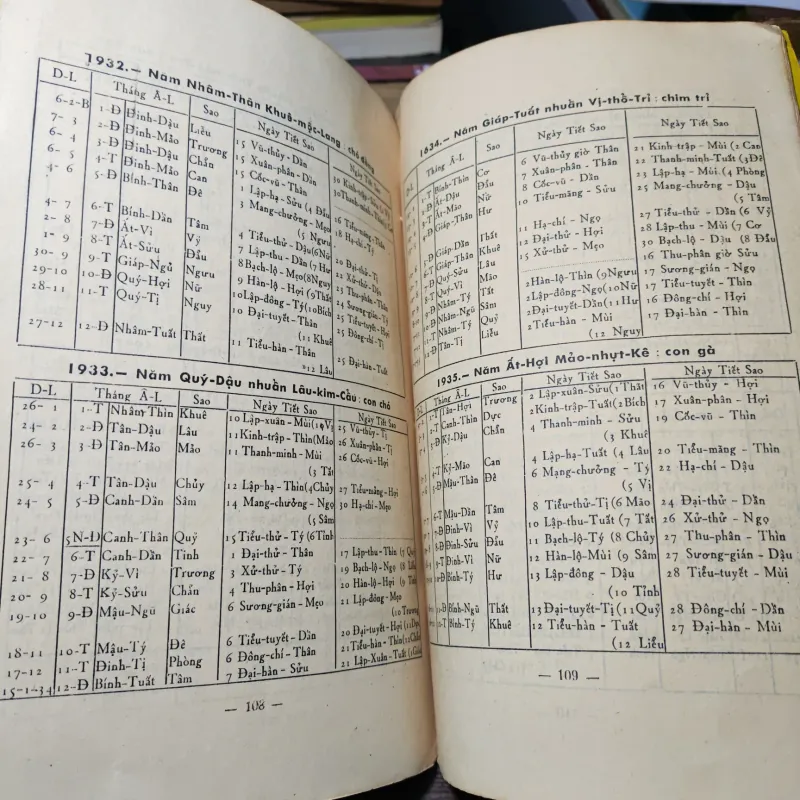 1932.— Năm Nhâm-Thân Khuê-mộc-Lang : chó
D-L Tháng Â-L Sao Ngày Tiết Sao Ngày Tiết
6-2-B 1-Đ Đinh-Dậu Liễu 15 Vũ-thủy - Dần
7- 3 2-Đ Đinh-Mão Trương 15 Xuân-phân - Dần
6- 4 3-Đ Đinh-Dậu Chẩn 15 Cốc-vũ - Thìn
6- 5 4-T Đinh-Mão Can 1 Lập-hạ - Sửu (4 Đẩu
4- 6 5-Đ Bính-Thân Đê 3 Mang-chưởng - Mẹo 16 Tiểu-mãng
(5 Ngưu 18 Hạ-chí
4- 7 6-T Bính-Dần Tâm 4 Tiểu-thử - Dậu(6Nữ 20 Đại-thử
2- 8 7-Đ Ất-Vị Vỹ 7 Lập-thu - Dần (7 Hư 22 Xử-thử
1- 9 8-T Ất-Sửu Đẩu 8 Bạch-lộ - Mẹo(8Nguy 23 Thu-phân
30- 9 9-T Giáp-Ngũ Ngưu 9 Hàn-lộ - Hợi (9Thất 24 Sương-giáng
29-10 10-Đ Quý-Hợi Nữ 10 Lập-đông - Tý(10Bích 25 Tiểu-tuyết - Hợi
28-11 11-T Quý-Tị Nguy 10 Đại-tuyết - Thân 25 Đông-chí
(11 Khuê
27-12 12-Đ Nhâm-Tuất Thất 11 Tiểu-hàn - Thân 25 Đại-hàn - Tuất
(12 Lâu
1933.— Năm Quý-Dậu nhuần Lâu-kim-Cầu : con chó
D-L Tháng Â-L Sao Ngày Tiết Sao Ngày Tiết Sao
26- 1 1-T Nhâm-Thìn Khuê 10 Lập-xuân - Mùi 25 Vũ-thủy
24- 2 2-Đ Tân-Dậu Lâu 11 Kinh-trập - Thìn(Mão 26 Xuân-phân
26- 3 3-Đ Tân-Mão Mão 11 Thanh-minh - Mùi 26 Cốc-vũ - Hợi
(3 Tất
25- 4 4-T Tân-Dậu Chủy 12 Lập-hạ - Thìn(4Chủy 27 Tiểu-mãng - Hợi
24- 5 5-Đ Canh-Dần Sâm 14 Mang-chưởng - Ngọ 30 Hạ-chí - Mẹo
(5 Sâm
23- 6 5N-Đ Canh-Thân Quỷ 15 Tiểu-thử - Tý (6 Tỉnh
22- 7 6-T Canh-Dần Tỉnh 1 Đại-thử - Thân 17 Lập-thu - Thìn (7 Quỷ
21- 8 7-Đ Kỷ-Vị Trương 3 Xử-thử - Tý 19 Bạch-lộ - Ngọ (8
20- 9 8-T Kỷ-Sửu Chẩn 4 Thu-phân - Hợi 20 Hàn-lộ - Hợi (9
19-10 9-Đ Mậu-Ngũ Giác 6 Sương-gián - Mẹo 21 Lập-đông - Mẹo
(10 Trương
18-11 10-T Mậu-Tý Đê 6 Tiểu-tuyết - Dần 20 Đại-tuyết - Hợi
17-12 11-T Đinh-Tị Phòng 6 Đông-chí - Thân 21 Tiểu-hàn - Thìn(12Chẩn
15-1-34 12-Đ Bính-Tuất Tâm 7 Đại-hàn - Sửu 21 Lập-Xuân - Tuất
— 108 —
1634.— Năm Giáp-Tuất nhuần Vị-thồ-Trỉ : chim trỉ
D-L Tháng Â-L Sao Ngày Tiết Sao Ngày Tiết Sao
1-T Bính-Thìn Cơ 6 Vũ-thủy giờ Thân 21 Kinh-trập - Mùi (2 Can
Ất-Dậu Đẩu 7 Xuân-phân - Thân 22 Thanh-minh-Tuất (3Đê
Ất-Mão Nữ 8 Cốc-vũ - Dần 23 Lập-hạ - Mùi (4 Phòng
Giáp-Thân Hư 10 Tiểu-mãng - Sửu 25 Mang-chưởng - Dậu
(5 Tâm
Giáp-Dần Thất 11 Hạ-chí - Ngọ 27 Tiểu-thử - Dần (6 Vỹ
Quý-Mùi Khuê 12 Đại-thử - Hợi 28 Lập-thu - Mùi (7 Cơ
Quý-Sửu Lâu 15 Xử-thử - Mẹo 30 Bạch-lộ - Dậu (8 Đẩu
Quý-Vị Mão 16 Thu-phân giờ Sửu
Nhâm-Tý Tất 2Hàn-lộ-Thìn (9Ngưu 17 Sương-gián - Ngọ
Nhâm-Ngũ Sâm 2Lập-đông-Ngọ(10Nữ 17 Tiểu-tuyết - Thìn
Nhâm-Tý Quỷ 2Đại-tuyết-Dần(11Hư 16 Đông-chí - Hợi
Tân-Tị Liễu 2Tiểu-hàn - Mùi 17 Đại-hàn - Thìn
(12 Nguy
1935.— Năm Ất-Hợi Mảo-nhựt-Kê : con gà
D-L Tháng Â-L Sao Ngày Tiết Sao Ngày Tiết Sao
1-T Tân-Hợi Trương 2 Lập-xuân-Sửu(1Thất 16 Vũ-thủy - Hợi
2-T Canh-Thìn Dực 2Kinh-trập-Tuất(2Bích 17 Xuân-phân - Hợi
3-Đ Kỷ-Dậu Chẩn 4 Thanh-minh - Sửu 19 Cốc-vũ - Thìn
(3 Khuê
T Kỷ-Mão Can 4 Lập-hạ-Tuất (4 Lâu 20 Tiểu-mãng - Thìn
Đ Mậu-Thân Đê 6 Mạng-chưởng - Tý 22 Hạ-chí - Dậu
(5 Vị
T Mậu-Dần Tâm 8 Tiểu-thử-Tị (6 Mảo 24 Đại-thử - Dần
Đinh-Vị Vỹ 10 Lập-thu-Tuất (7 Tất 26 Xử-thử - Ngọ
Đinh-Sửu Đẩu 11 Bạch-lộ-Tý (8 Chủy 27 Thu-phân - Thìn
Bính-Ngũ Nữ 12 Hàn-lộ-Mùi (9 Sâm 27 Sương-gián - Dậu
Bính-Tý Hư 13 Lập-đông - Dậu 28 Tiểu-tuyết - Mùi
(10 Tỉnh
Bính-Ngũ Thất 13 Đại-tuyết-Tị (11Quỷ 28 Đông-chí - Dần
Bính-Tý Khuê 12 Tiểu-hàn - Tuất 27 Đại-hàn - Mùi
(12 Liễu
— 109 —